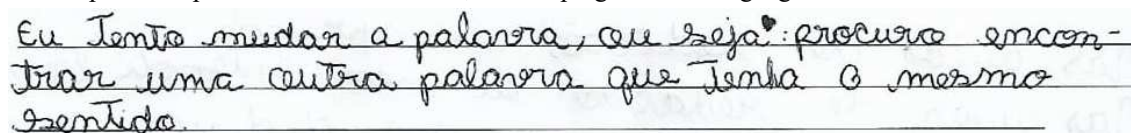 Eu Tento mudar a palavra, ou seja: procuro encon-
trar uma outra palavra que Tenha o mesmo
sentido.